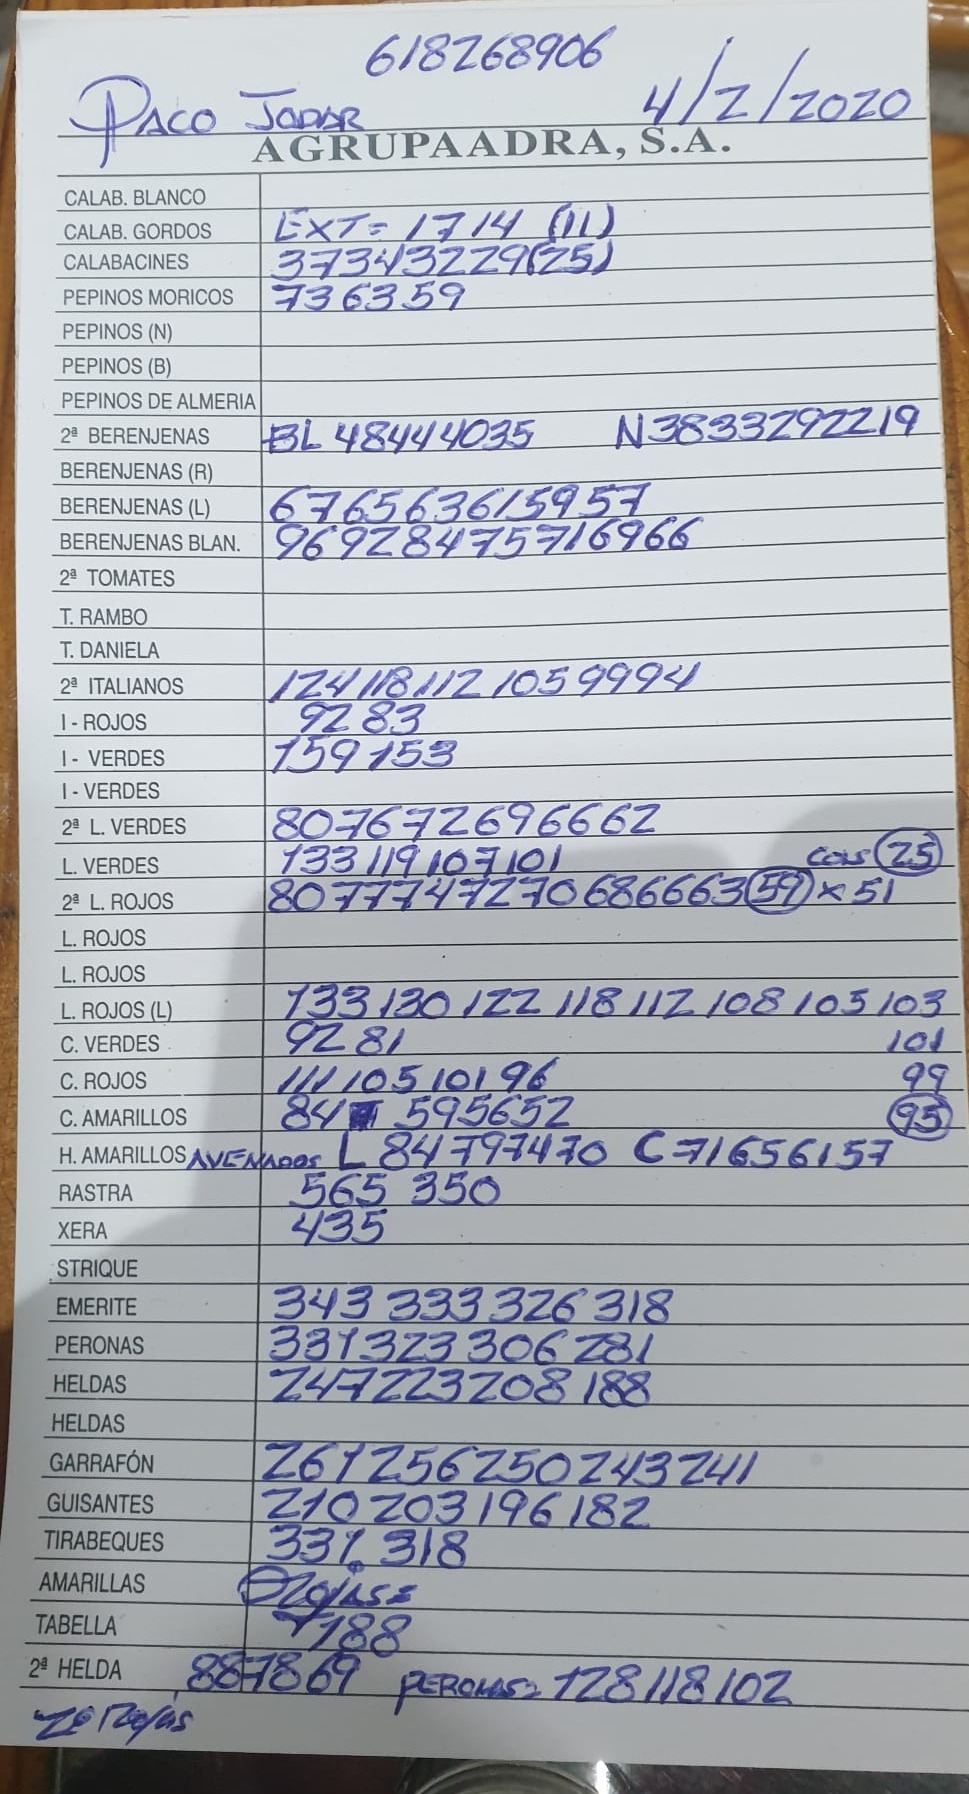 618268906
PACO JODAR 4/2/2020
AGRUPAADRA, S.A.
CALAB. BLANCO
CALAB. GORDOS EXT= 1714 (11)
CALABACINES 37343229(25)
PEPINOS MORICOS 736359
PEPINOS (N)
PEPINOS (B)
PEPINOS DE ALMERIA
2ª BERENJENAS BL 48444035 N3833292219
BERENJENAS (R)
BERENJENAS (L) 676563615957
BERENJENAS BLAN. 96928475716966
2ª TOMATES
T. RAMBO
T. DANIELA
2ª ITALIANOS 124118112 1059994
I - ROJOS 9283
I - VERDES 159153
I - VERDES
2ª L. VERDES 807672696662
L. VERDES 133119107101 (25)
2ª L. ROJOS 8077747270686663(59)x51
L. ROJOS
L. ROJOS
L. ROJOS (L) 133 130 122 118 112 108 105 103
C. VERDES 9281 101
C. ROJOS 111 105 101 96 99
C. AMARILLOS 84 595652 (95)
H. AMARILLOS L 84797470 C 71656157
RASTRA 565 350
XERA 435
STRIQUE
EMERITE 343 333 326 318
PERONAS 331323306281
HELDAS 247223208188
HELDAS
GARRAFÓN 261256250243241
GUISANTES 210203196182
TIRABEQUES 331. 318
AMARILLAS
TABELLA 188
2ª HELDA 887869 PERONAS= 128118102